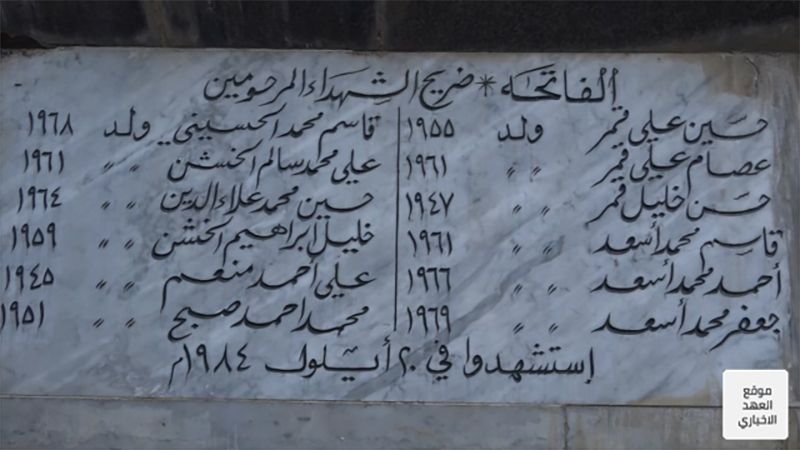 الفاتحة * ضريح الشهداء المرحومين
حسين علي قمر ولد ١٩٥٥
عصام علي قمر " " ١٩٦١
حسن خليل قمر " " ١٩٤٧
قاسم محمد أسعد " " ١٩٦١
أحمد محمد أسعد " " ١٩٦٦
جعفر محمد أسعد " " ١٩٦٩
قاسم محمد الحسيني ولد ١٩٦٨
علي محمد سالم الخشن " " ١٩٦١
حسين محمد علاء الدين " " ١٩٦٤
خليل ابراهيم الخشن " " ١٩٥٩
علي احمد منعم " " ١٩٤٥
محمد احمد صبح " " ١٩٥١
إستشهدوا في ٢٠ أيلول ١٩٨٤م
موقع
العهد
الاخباري